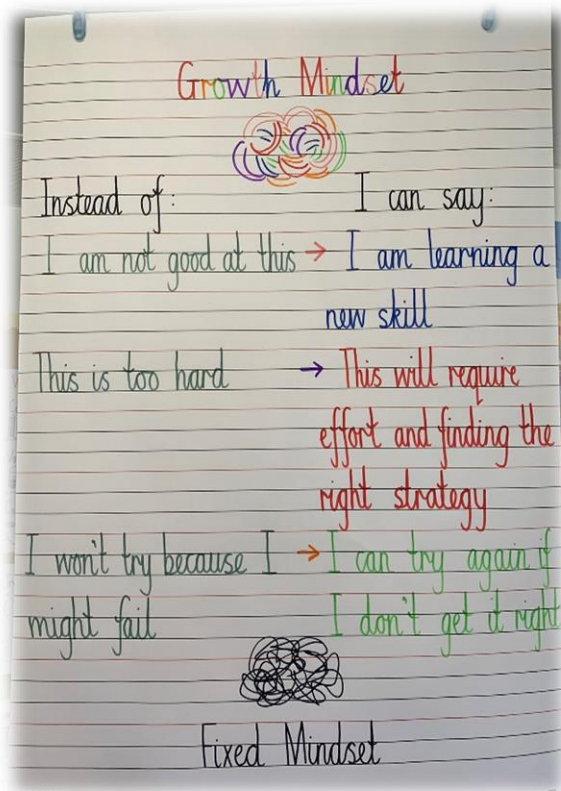 Growth Mindset
Instead of: I can say:
I am not good at this → I am learning a
new skill
This is too hard → This will require
effort and finding the
right strategy
I won't try because I → I can try again if
might fail I don't get it right
Fixed Mindset